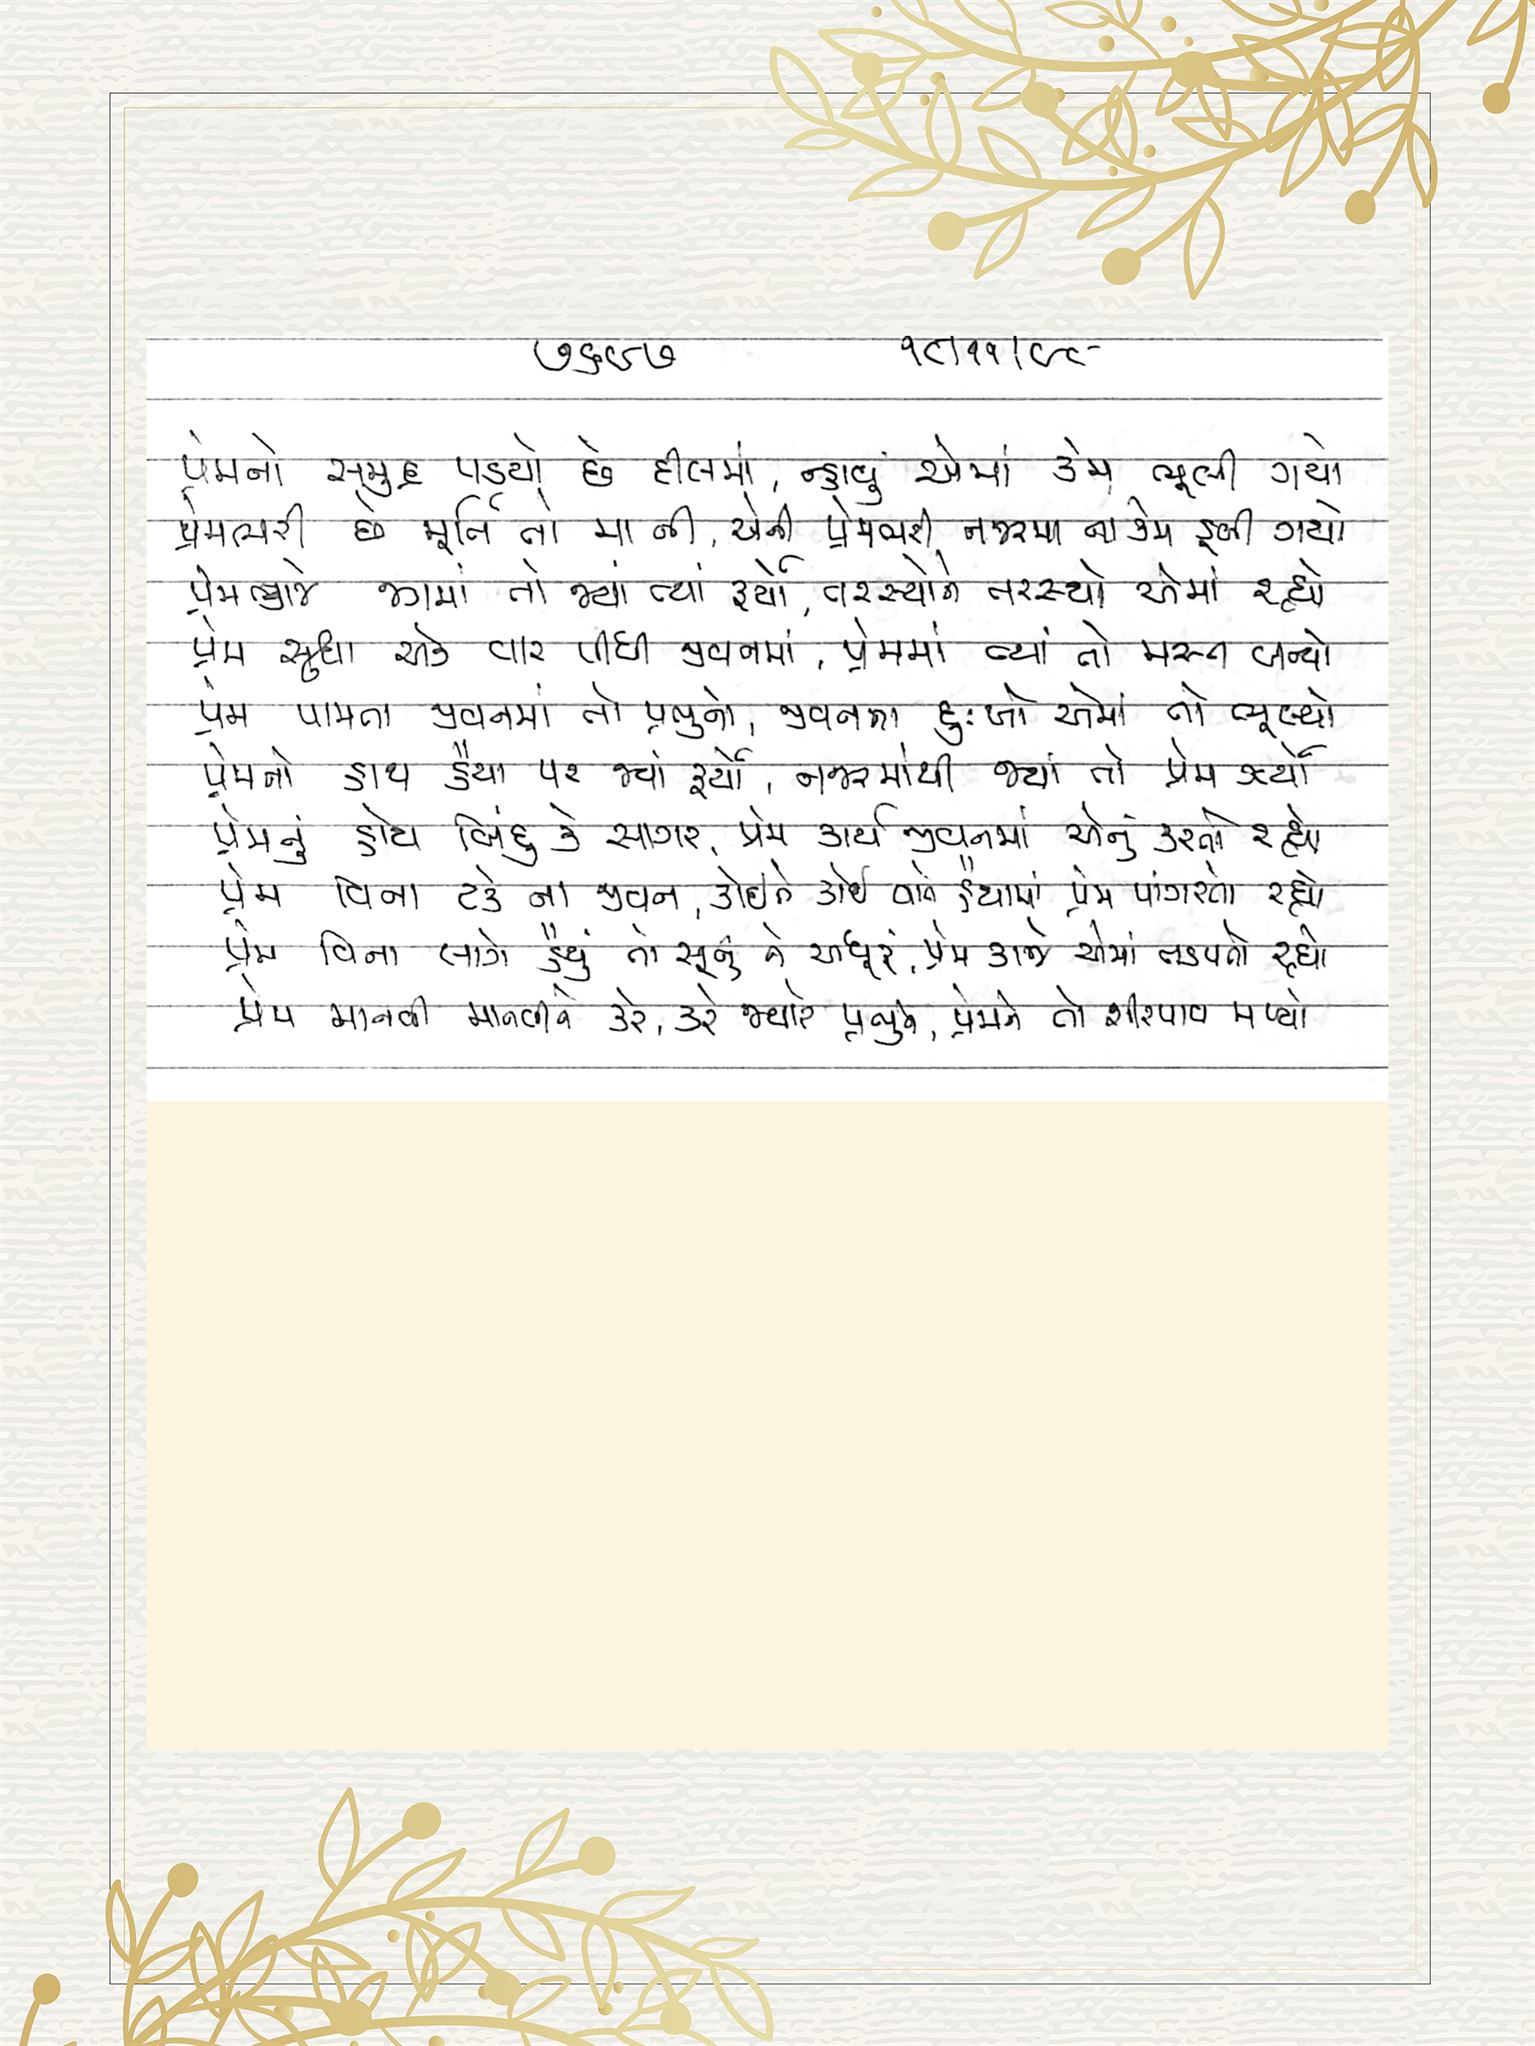 ૭૬૯૭ ૧૮/૧૧/૯૮
પ્રેમનો સમુદ્ર પડયો છે દીલમાં, ન્હાવું એમાં કેમ ભૂલી ગયો
પ્રેમભરી છે મૂર્તિ તો મા ની, એની પ્રેમભરી નજરમાં ના કેમ ડૂબી ગયો
પ્રેમભાજે જગમાં તો જ્યાં ત્યાં ફર્યો, તરસ્યોને તરસ્યો એમાં રહ્યો
પ્રેમ સુધા એક વાર પીધી જીવનમાં, પ્રેમમાં ત્યાં તો મસ્ત બન્યો
પ્રેમ પામતા જીવનમાં તો પ્રભુનો, જીવનના દુઃખો એમાં તો ભૂલ્યો
પ્રેમનો હાથ હૈયા પર જ્યાં ફર્યો, નજરમાંથી જ્યાં તો પ્રેમ ઝર્યો
પ્રેમનું હોય બિંદુ કે સાગર, પ્રેમ કાર્ય જીવનમાં એનું કરતો રહ્યો
પ્રેમ વિના ટકે ના જીવન, કોઈને કોઈ વાતે હૈયામાં પ્રેમ પાંગરતો રહ્યો
પ્રેમ વિના લાગે હૈયું તો સૂનું ને અધૂરું, પ્રેમ કાજે એમાં તડપતો રહ્યો
પ્રેમ માનવી માનવીને કરે, કરે જ્યારે પ્રભુને, પ્રેમને તો શીરપાવ મળ્યો